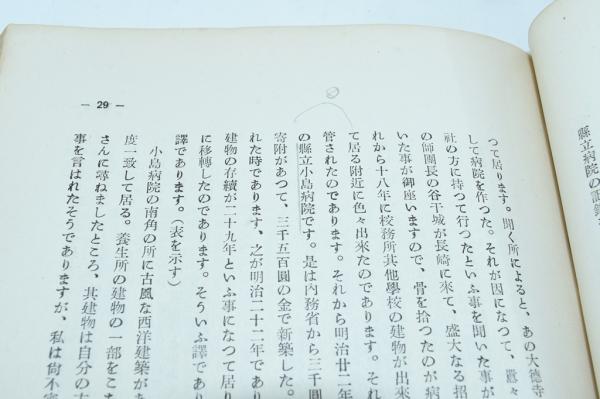 縣立病院の記録
— 29 —
つて居ります。聞く所によると、あの大德寺
して病院を作つた。それが因になつて、置々
社の方に持つて行つたといふ事を聞いた事が
の師團長の谷干城が長崎に來て、盛大なる招
いた事が御座いますので、骨を拾つたのが病
れから十八年に校務所其他學校の建物が出來
て居る附近に色々出來たのであります。それ
管されたのであります。それから明治廿二年
の縣立小島病院です。是は內務省から三千圓
寄附があつて、三千五百圓の金で新築した。
れた時であります、之が明治二十二年であり
建物の存續が二十九年といふ事になつて居り
に移轉したのであります。そういふ譯であり
譯であります。(表を示す)
小島病院の南角の所に古風な西洋建築があ
度一致して居る。養生所の建物の一部をこわ
さんに尋ねましたところ、其建物は自分の古
事を言はれたそうでありますが、私は尙不審